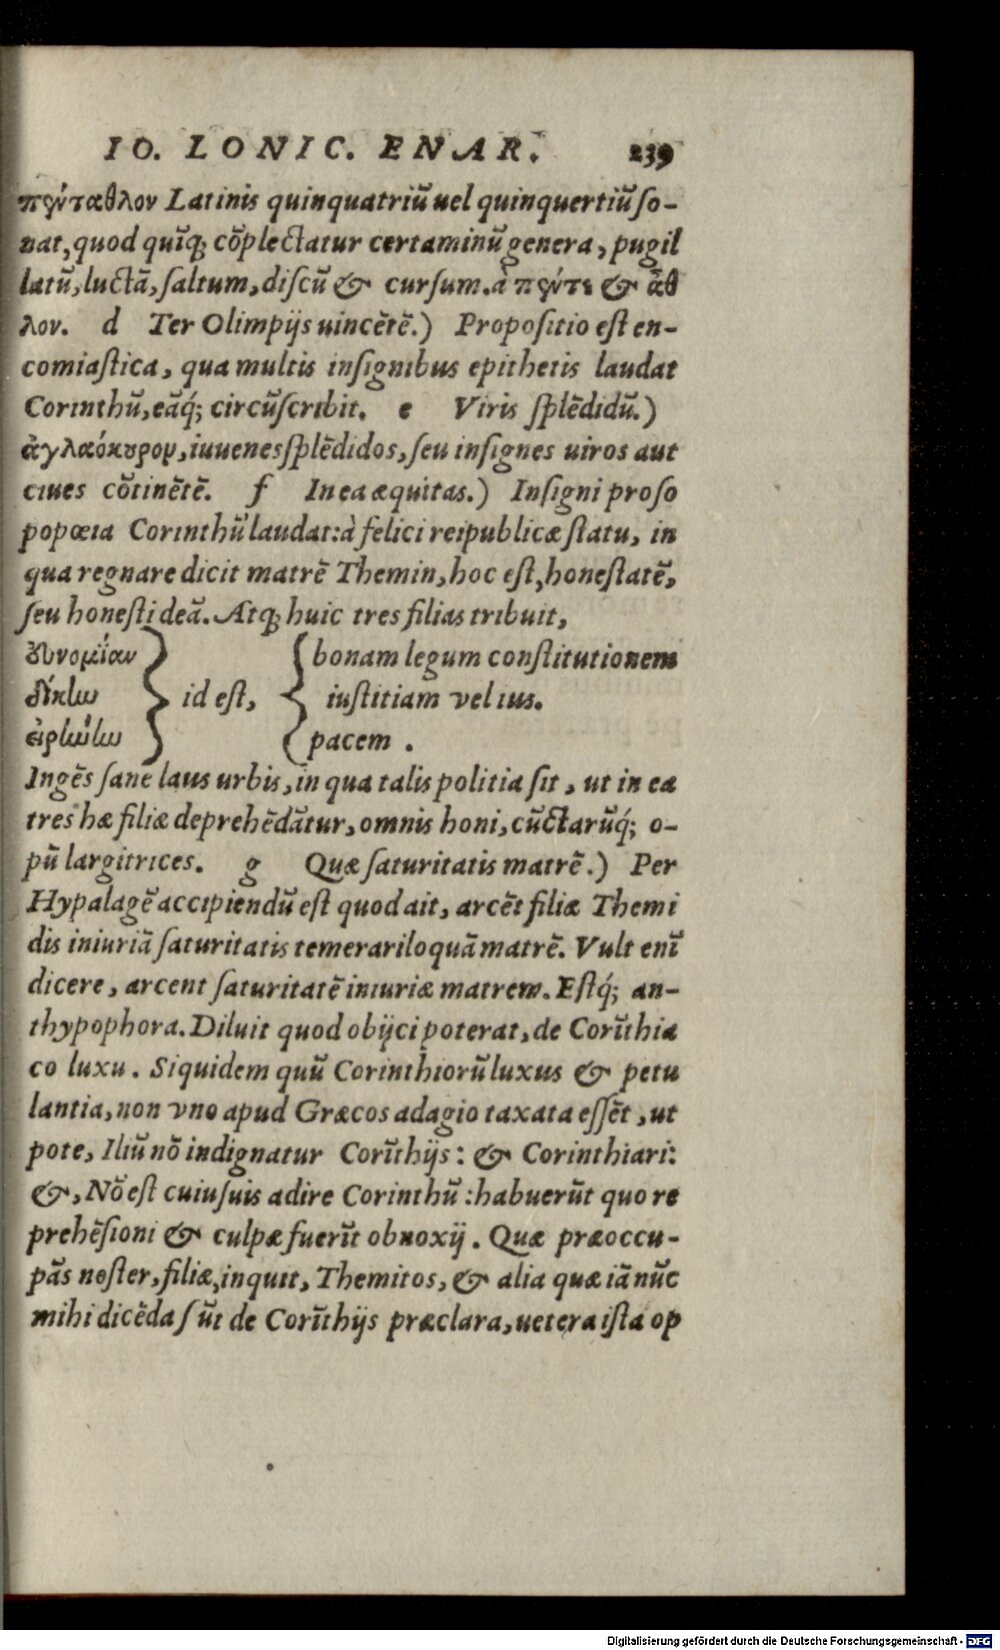 IO. LONIC. ENAR. 239
πένταθλον Latinis quinquatriũ uel quinquertiũ ſo-
nat, quod quĩq; cõplectatur certaminũ genera, pugil
latũ, luctã, ſaltum, diſcũ & curſum. à πέντε & ἆθ
λον. d Ter Olimpijs uincẽtẽ.) Propoſitio eſt en-
comiaſtica, qua multis inſignibus epithetis laudat
Corinthũ, eãq́; circũſcribit. e Viris ſplẽdidũ.)
ἀγλαόκουρον, iuuenes ſplẽdidos, ſeu inſignes uiros aut
ciues cõtinẽtẽ. f In ea æquitas.) Inſigni proſo
popœia Corinthũ laudat: à felici reipublicæ ſtatu, in
qua regnare dicit matrẽ Themin, hoc eſt, honeſtatẽ,
ſeu honeſti deã. Atq; huic tres filias tribuit,
ἐυνομίαν } { bonam legum conſtitutionem
δίκην } id eſt, { iuſtitiam vel ius.
ἐιρήνην } { pacem.
Ingẽs ſane laus urbis, in qua talis politia ſit, ut in ea
tres hæ filiæ deprehẽdãtur, omnis honi, cũctarũq́; o-
pũ largitrices. g Quæ ſaturitatis matrẽ.) Per
Hypalagẽ accipiendũ eſt quod ait, arcẽt filiæ Themi
dis iniuriã ſaturitatis temerariloquã matrẽ. Vult enĩ
dicere, arcent ſaturitatẽ iniuriæ matrem. Eſtq́; an-
thypophora. Diluit quod obijci poterat, de Corĩthia
co luxu. Siquidem quũ Corinthiorũ luxus & petu
lantia, non vno apud Græcos adagio taxata eſſẽt, ut
pote, Iliũ nõ indignatur Corĩthijs: & Corinthiari:
&, Nõ eſt cuiuſuis adire Corinthũ: habuerũt quo re
prehẽſioni & culpæ fuerĩt obnoxij. Quæ præoccu-
pãs noſter, filiæ, inquit, Themitos, & alia quæ iã nũc
mihi dicẽda ſũt de Corĩthijs præclara, uetera iſta op
Digitalisierung gefördert durch die Deutsche Forschungsgemeinschaft - DFG